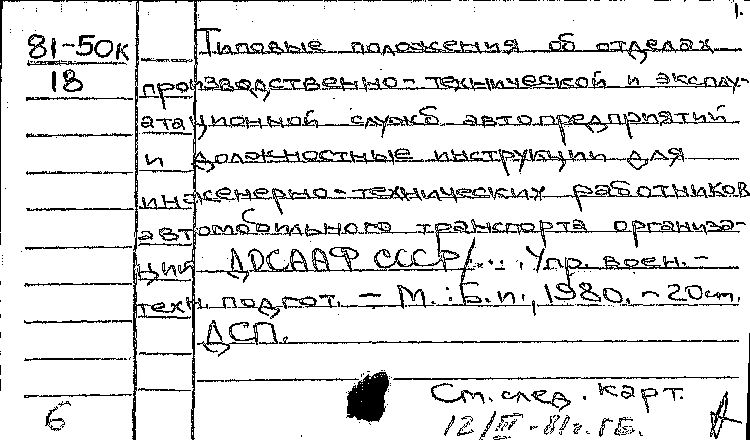 1.
81-50к
18
Типовые положения об отделах
производственно-технической и эксплу-
атационной служб автопредприятий
и должностные инструкции для
инженерно-технических работников
автомобильного транспорта организа-
ций ДОСААФ СССР/... , Упр. воен.-
техн. подгот. - М.: Б.и., 1980. - 20 ст.
ДСП.
См. след. карт.
6
12/III-81г. ГБ.